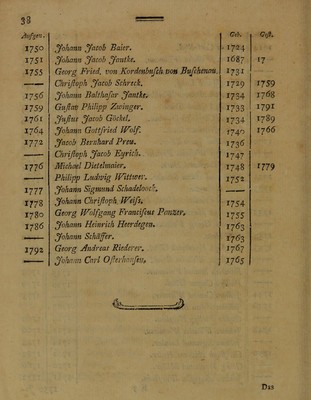 38
Aufgen. Geb. Gest.
1750 Johann Jacob Baier. 1724
1751 Johann Jacob Jantke. 1687 17
1755 Georg Fried. von Kordenbusch von Buschenau. 1731
—— Christoph Jacob Schreck. 1729 1759
1756 Johann Balthasar Jantke. 1734 1768
1759 Gustav Philipp Zwinger. 1733 1791
1761 Justus Jacob Göckel. 1734 1789
1764 Johann Gottfried Wolf. 1740 1766
1772 Jacob Bernhard Preu. 1736
—— Christoph Jacob Eyrich. 1747
1776 Michael Dietelmaier. 1748 1779
—— Philipp Ludwig Wittwer. 1752
1777 Johann Sigmund
1778 Johann Christoph Weiss. 1754
1780 Georg Wolfgang Franciscus Panzer. 1755
1786 Johann Heinrich Heerdegen. 1763
—— Johann Schäffer. 1763
1792 Georg Andreas Riederer. 1767
—— Johann Carl Osterhausen. 1765
Das